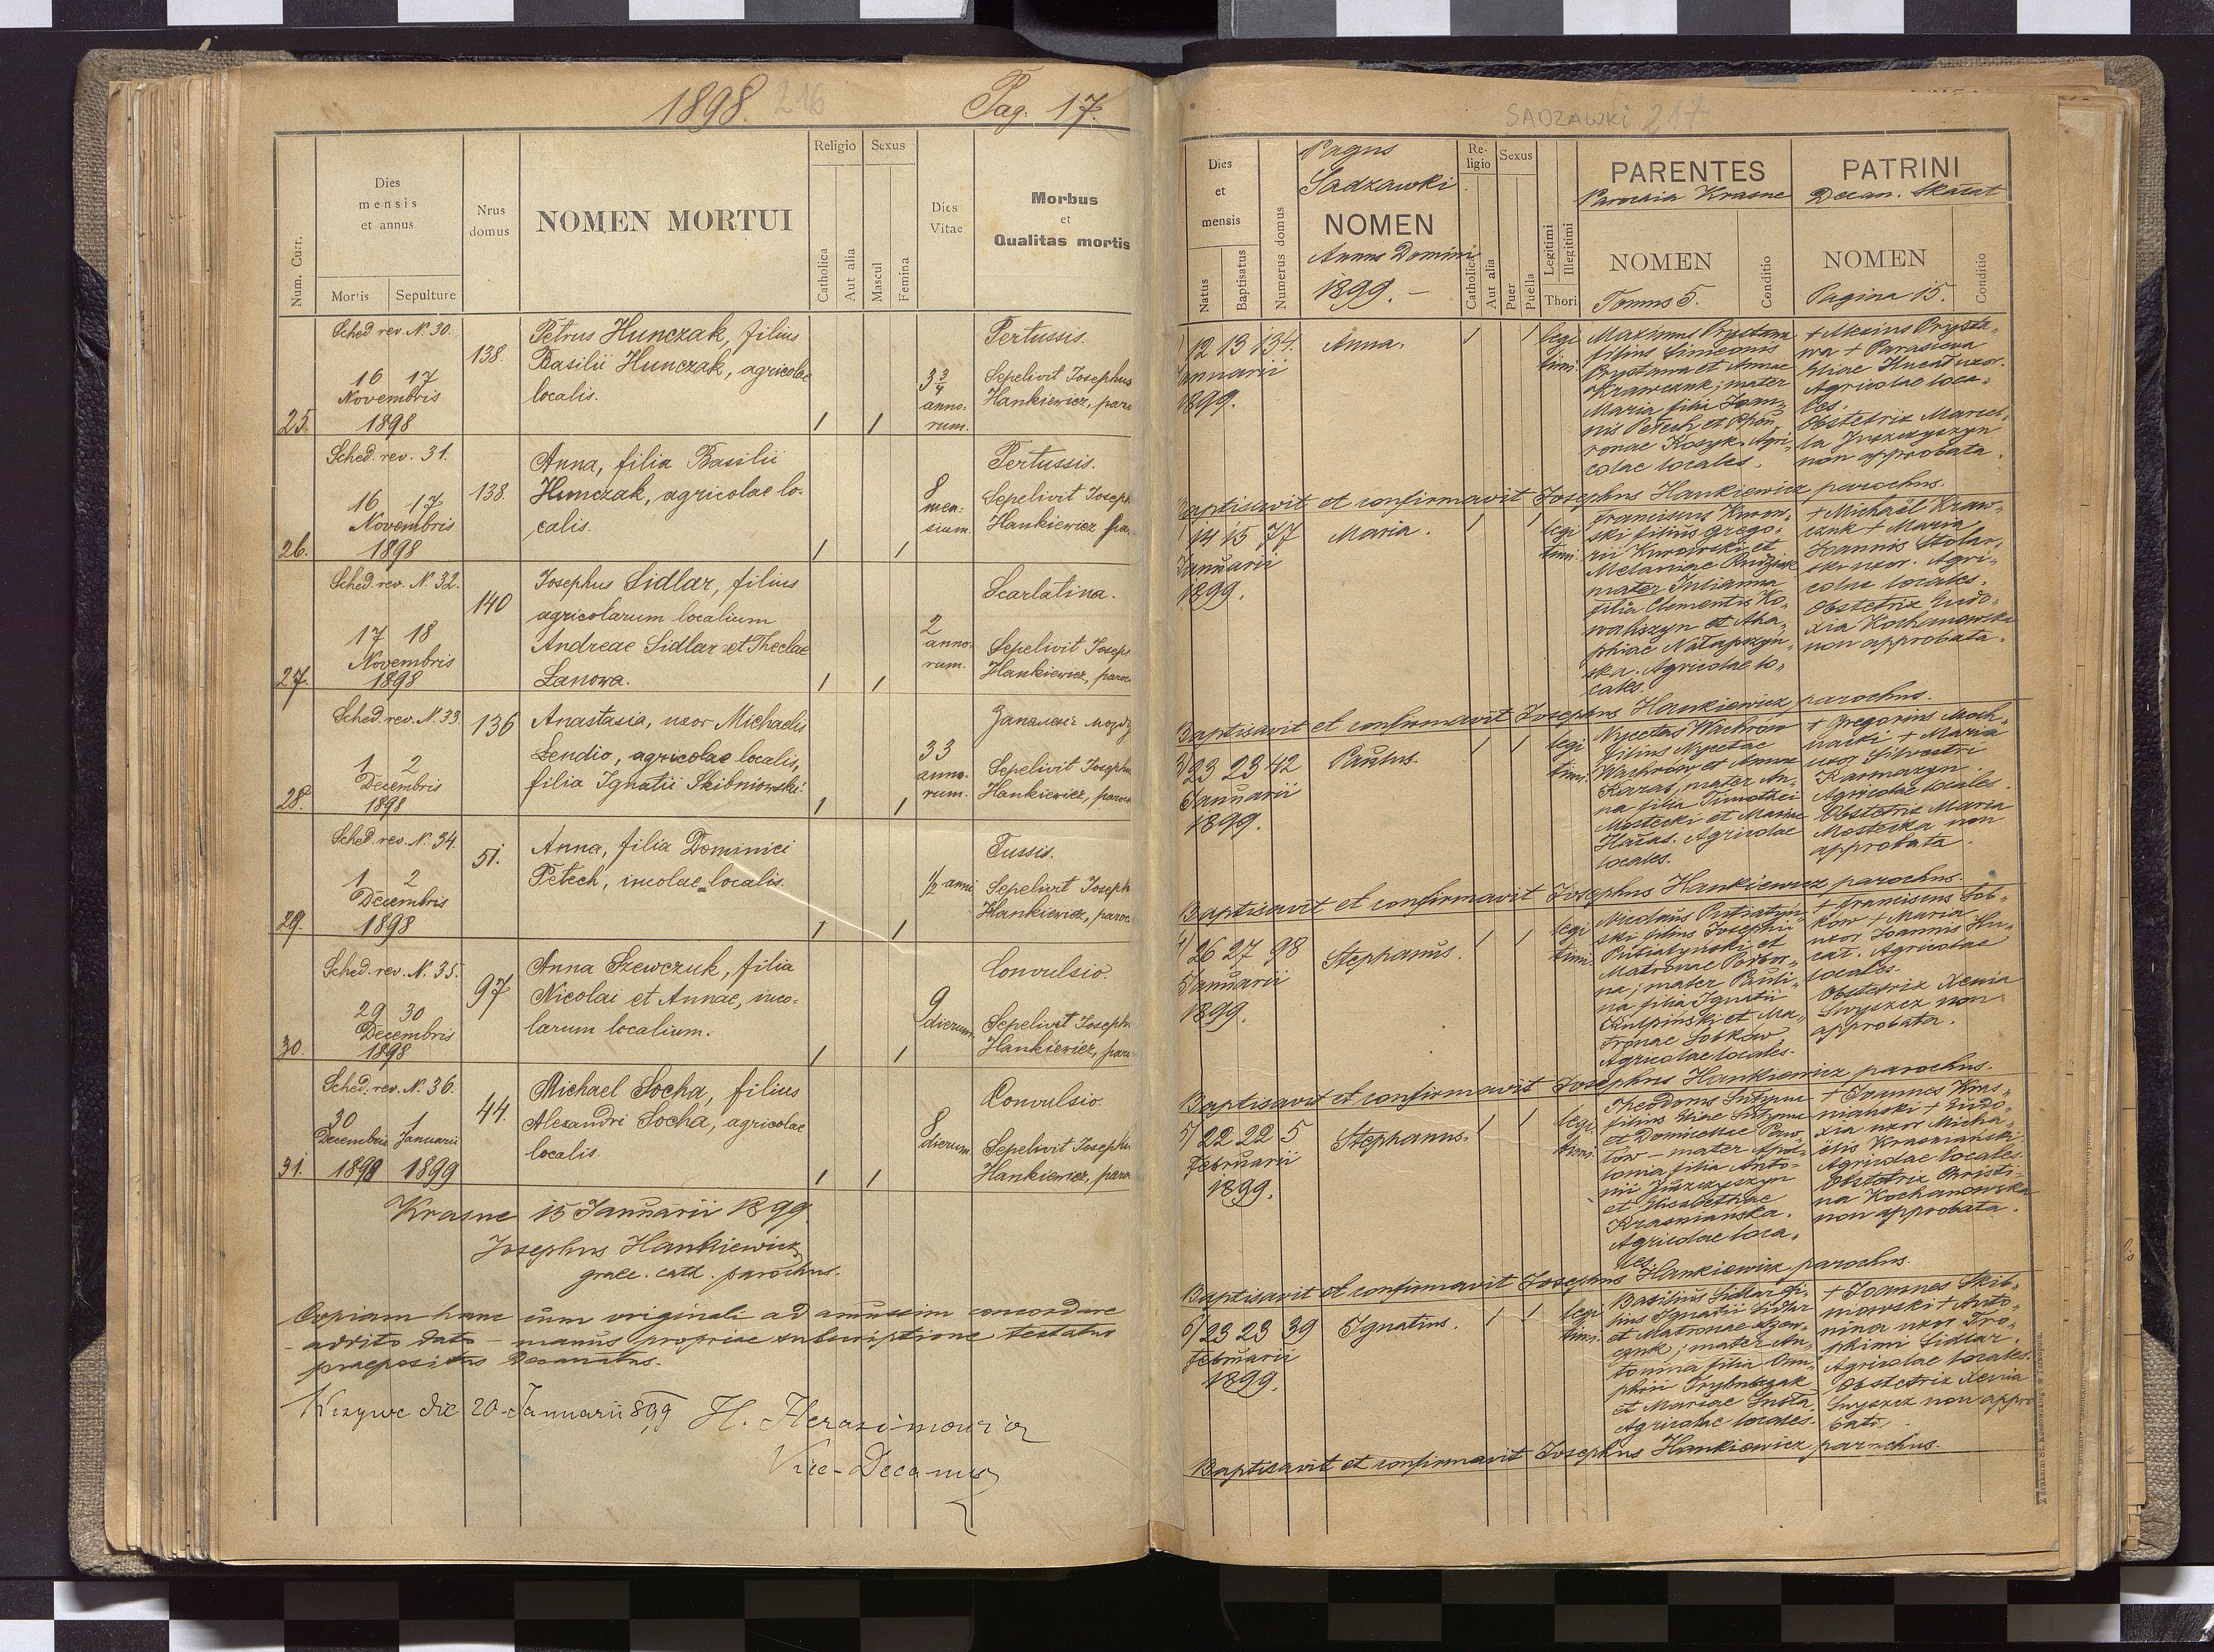 1898. 216 Pag. 17.
Num. Curr.
Dies mensis et annus
Mortis Sepulture
Nrus domus
NOMEN MORTUI
Religio
Catholica
Aut alia
Sexus
Mascul
Femina
Dies Vitae
Morbus
et
Qualitas mortis
25.
Sched. rev. N. 30.
16 17
Novembris
1898
138.
Petrus Hunczak, filius
Basilii Hunczak, agricolae
localis.
1 1
3 3/4
anno-
rum.
Pertussis.
Sepelivit Josephus
Hankiewicz, paro
26.
Sched. rev. 31.
16 17
Novembris
1898
138
Anna, filia Basilii
Hunczak, agricolae lo-
calis.
1 1
8
men-
sium.
Pertussis.
Sepelivit Joseph
Hankiewicz, pa
27.
Sched. rev. N. 32.
17 18
Novembris
1898
140
Josephus Sidlar, filius
agricolarum localium
Andreae Sidlar et Theclae
Lanowa.
1 1
2
anno-
rum.
Scarlatina.
Sepelivit Joseph
Hankiewicz, paro
28.
Sched. rev. N. 33.
1 2
Decembris
1898
136
Anastasia, uxor Michaelis
Lendio, agricolae localis,
filia Ignatii Skibniowski.
1 1
33
anno-
rum.
Запаленє мозгу
Sepelivit Josephu
Hankiewicz, paroch
29.
Sched. rev. N. 34.
1 2
Decembris
1898
51.
Anna, filia Dominici
Petech, incolae localis.
1 1
1/2 anni
Tussis.
Sepelivit Joseph
Hankiewicz, paroc
30.
Sched. rev. N. 35.
29 30
Decembris
1898
97
Anna Szewczuk, filia
Nicolai et Annae, inco-
larum localium.
1 1
9
dierum
Convulsio.
Sepelivit Joseph
Hankiewicz, paro
31.
Sched. rev. N. 36.
30 1
Decembris Januarii
1898 1899
44.
Michael Socha, filius
Alexandri Socha, agricolae
localis.
1 1
8
dierum
Convulsio.
Sepelivit Josephu
Hankiewicz, paro
Krasne 15 Januarii 1899
Josephus Hankiewicz
graec. cath. parochus.
Copiam hanc cum originali ad amussim concordare
addito dato - manus propriae subscriptione testatur
praepositus Decanatus.
Krzywe die 20 Januarii 899 H. Herasimowicz
Vice-Decanus
SADZAWKI 217
Dies
et
mensis
Natus
Baptisatus
Numerus domus
Pagus
Sadzawki
NOMEN
Annus Domini
1899. -
Religio
Catholica
Aut alia
Sexus
Puer
Puella
Legitimi
Illegitimi
Thori
PARENTES
Parochia Krasne
NOMEN
Conditio
Tomus 5.
PATRINI
Decan. Skałat
NOMEN
Conditio
Pagina 15.
1/
12 13 134.
Januarii
1899.
Anna.
1 1
legi
timi.
Maximus Prystawa
filius Simeonis
Prystawa et Annae
Krawczuk; mater
Maria filia Joan-
nis Petech et
ronae Koszyk. Agri-
colae locales.
+ Alexius Prysta-
wa + Parasceva
Eliae Hucał uxor.
Agricolae loca-
les.
Obstetrix Maruch-
la Juszczyszyn
non approbata.
Baptisavit et confirmavit Josephus Hankiewicz parochus.
14 15 77
Januarii
1899.
Maria.
1 1
legi
timi.
Franciscus Kurow-
ski filius Grego-
rii Kurowski et
Melaniae Rudziak
mater Julianna
filia Clementis Ko-
walyszyn et Aha-
phiae Natapszyn-
ska. Agricolae lo-
cales.
+ Michaël Kraw-
czuk + Maria
Joannis Stolar-
ski uxor. Agri-
colae locales.
Obstetrix Eudo-
xia Kochanowska
non approbata.
Baptisavit et confirmavit Josephus Hankiewicz parochus.
3/
23 23 42
Januarii
1899.
Paulus.
1 1
legi
timi.
Nycetas Wachnow
filius Nycetae
Wachnow et Annae
Karaś, mater An-
na filia Timothei
Mosteski et Mariae
Haras. Agricolae
locales.
+ Gregorius Moch-
nacki + Maria
uxor Silvestri
Karmazyn.
Agricolae locales.
Obstetrix Maria
Mosteska non
approbata.
Baptisavit et confirmavit Josephus Hankiewicz parochus.
4/
26 27 98
Januarii
1899.
Stephanus.
1 1
legi
timi.
Nicolaus Putiatyn-
ski filius Josephi
Putiatynski et
Matronae Podbor-
na; mater Pauli-
na filia Ignatii
Kulpinski et Ma-
tronae Sobków
Agricolae locales.
+ Franciscus Sob-
ków + Maria
uxor Joannis Hu-
cał. Agricolae
locales.
Obstetrix Xenia
Swyszcz non
approbata.
Baptisavit et confirmavit Josephus Hankiewicz parochus.
5/
22 22 5
Februarii
1899.
Stephanus.
1 1
legi
timi.
Theodorus
filius Eliae
et Domicellae Paw-
low - mater Apol-
lonia filia Anto-
nii Juszczyszyn
et Elisabethae
Krasnianska.
Agricolae loca-
les.
+ Joannes Kras-
niański + Eudo-
xia uxor Micha-
ëlis Krasniański.
Agricolae locales.
Obstetrix Christi-
na Kochanowska
non approbata.
Baptisavit et confirmavit Josephus Hankiewicz parochus.
6/
23 23 39
Februarii
1899.
Ignatius.
1 1
legi
timi.
Basilius Sidlar fi-
lius Ignatii Sidlar
et Matronae Szew-
czuk; mater An-
tonina filia Onu-
phrii
et Mariae
Agricolae locales.
+ Joannes Skib-
niowski + Anto-
nina uxor Tro-
phimi Sidlar.
Agricolae locales.
Obstetrix Xenia
Swyszcz non appro
bata.
Baptisavit et confirmavit Josephus Hankiewicz parochus.
Z drukarni St. Kossowskiego w Tarnopolu.